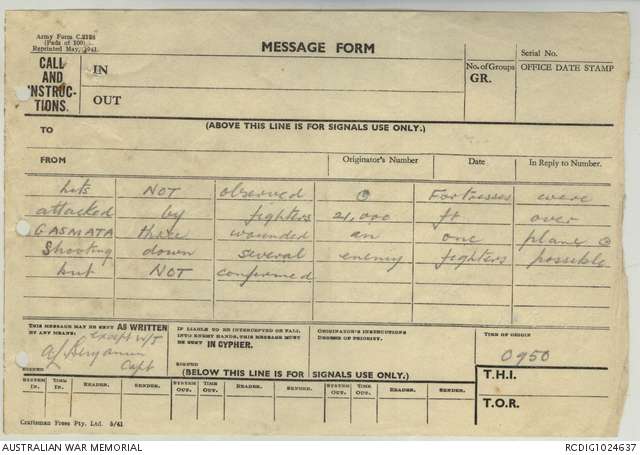 Army Form C.2128
(Pads of 100).
Reprinted May, 1941.
MESSAGE FORM
Serial No.
CALL
AND
INSTRUC-
TIONS.
IN
OUT
No. of Groups
GR.
OFFICE DATE STAMP
(ABOVE THIS LINE IS FOR SIGNALS USE ONLY.)
TO
FROM
Originator's Number
Date
In Reply to Number.
hits NOT observed Fortresses were
attacked by fighters 21,000 ft over
GASMATA three wounded in one plane
Shooting down several enemy fighters possible
but NOT confirmed
THIS MESSAGE MAY BE SENT AS WRITTEN
BY ANY MEANS.
except W/T
Capt
SIGNED
IF LIABLE TO BE INTERCEPTED OR FALL
INTO ENEMY HANDS, THIS MESSAGE MUST
BE SENT IN CYPHER.
SIGNED
ORIGINATOR'S INSTRUCTIONS
DEGREE OF PRIORITY.
TIME OF ORIGIN
0950
(BELOW THIS LINE IS FOR SIGNALS USE ONLY.)
T.H.I.
T.O.R.
SYSTEM IN. TIME IN. READER. SENDER. SYSTEM OUT. TIME OUT. READER. SENDER. SYSTEM OUT. TIME OUT. READER. SENDER.
Craftsman Press Pty. Ltd. 5/41
AUSTRALIAN WAR MEMORIAL
RCDIG1024637